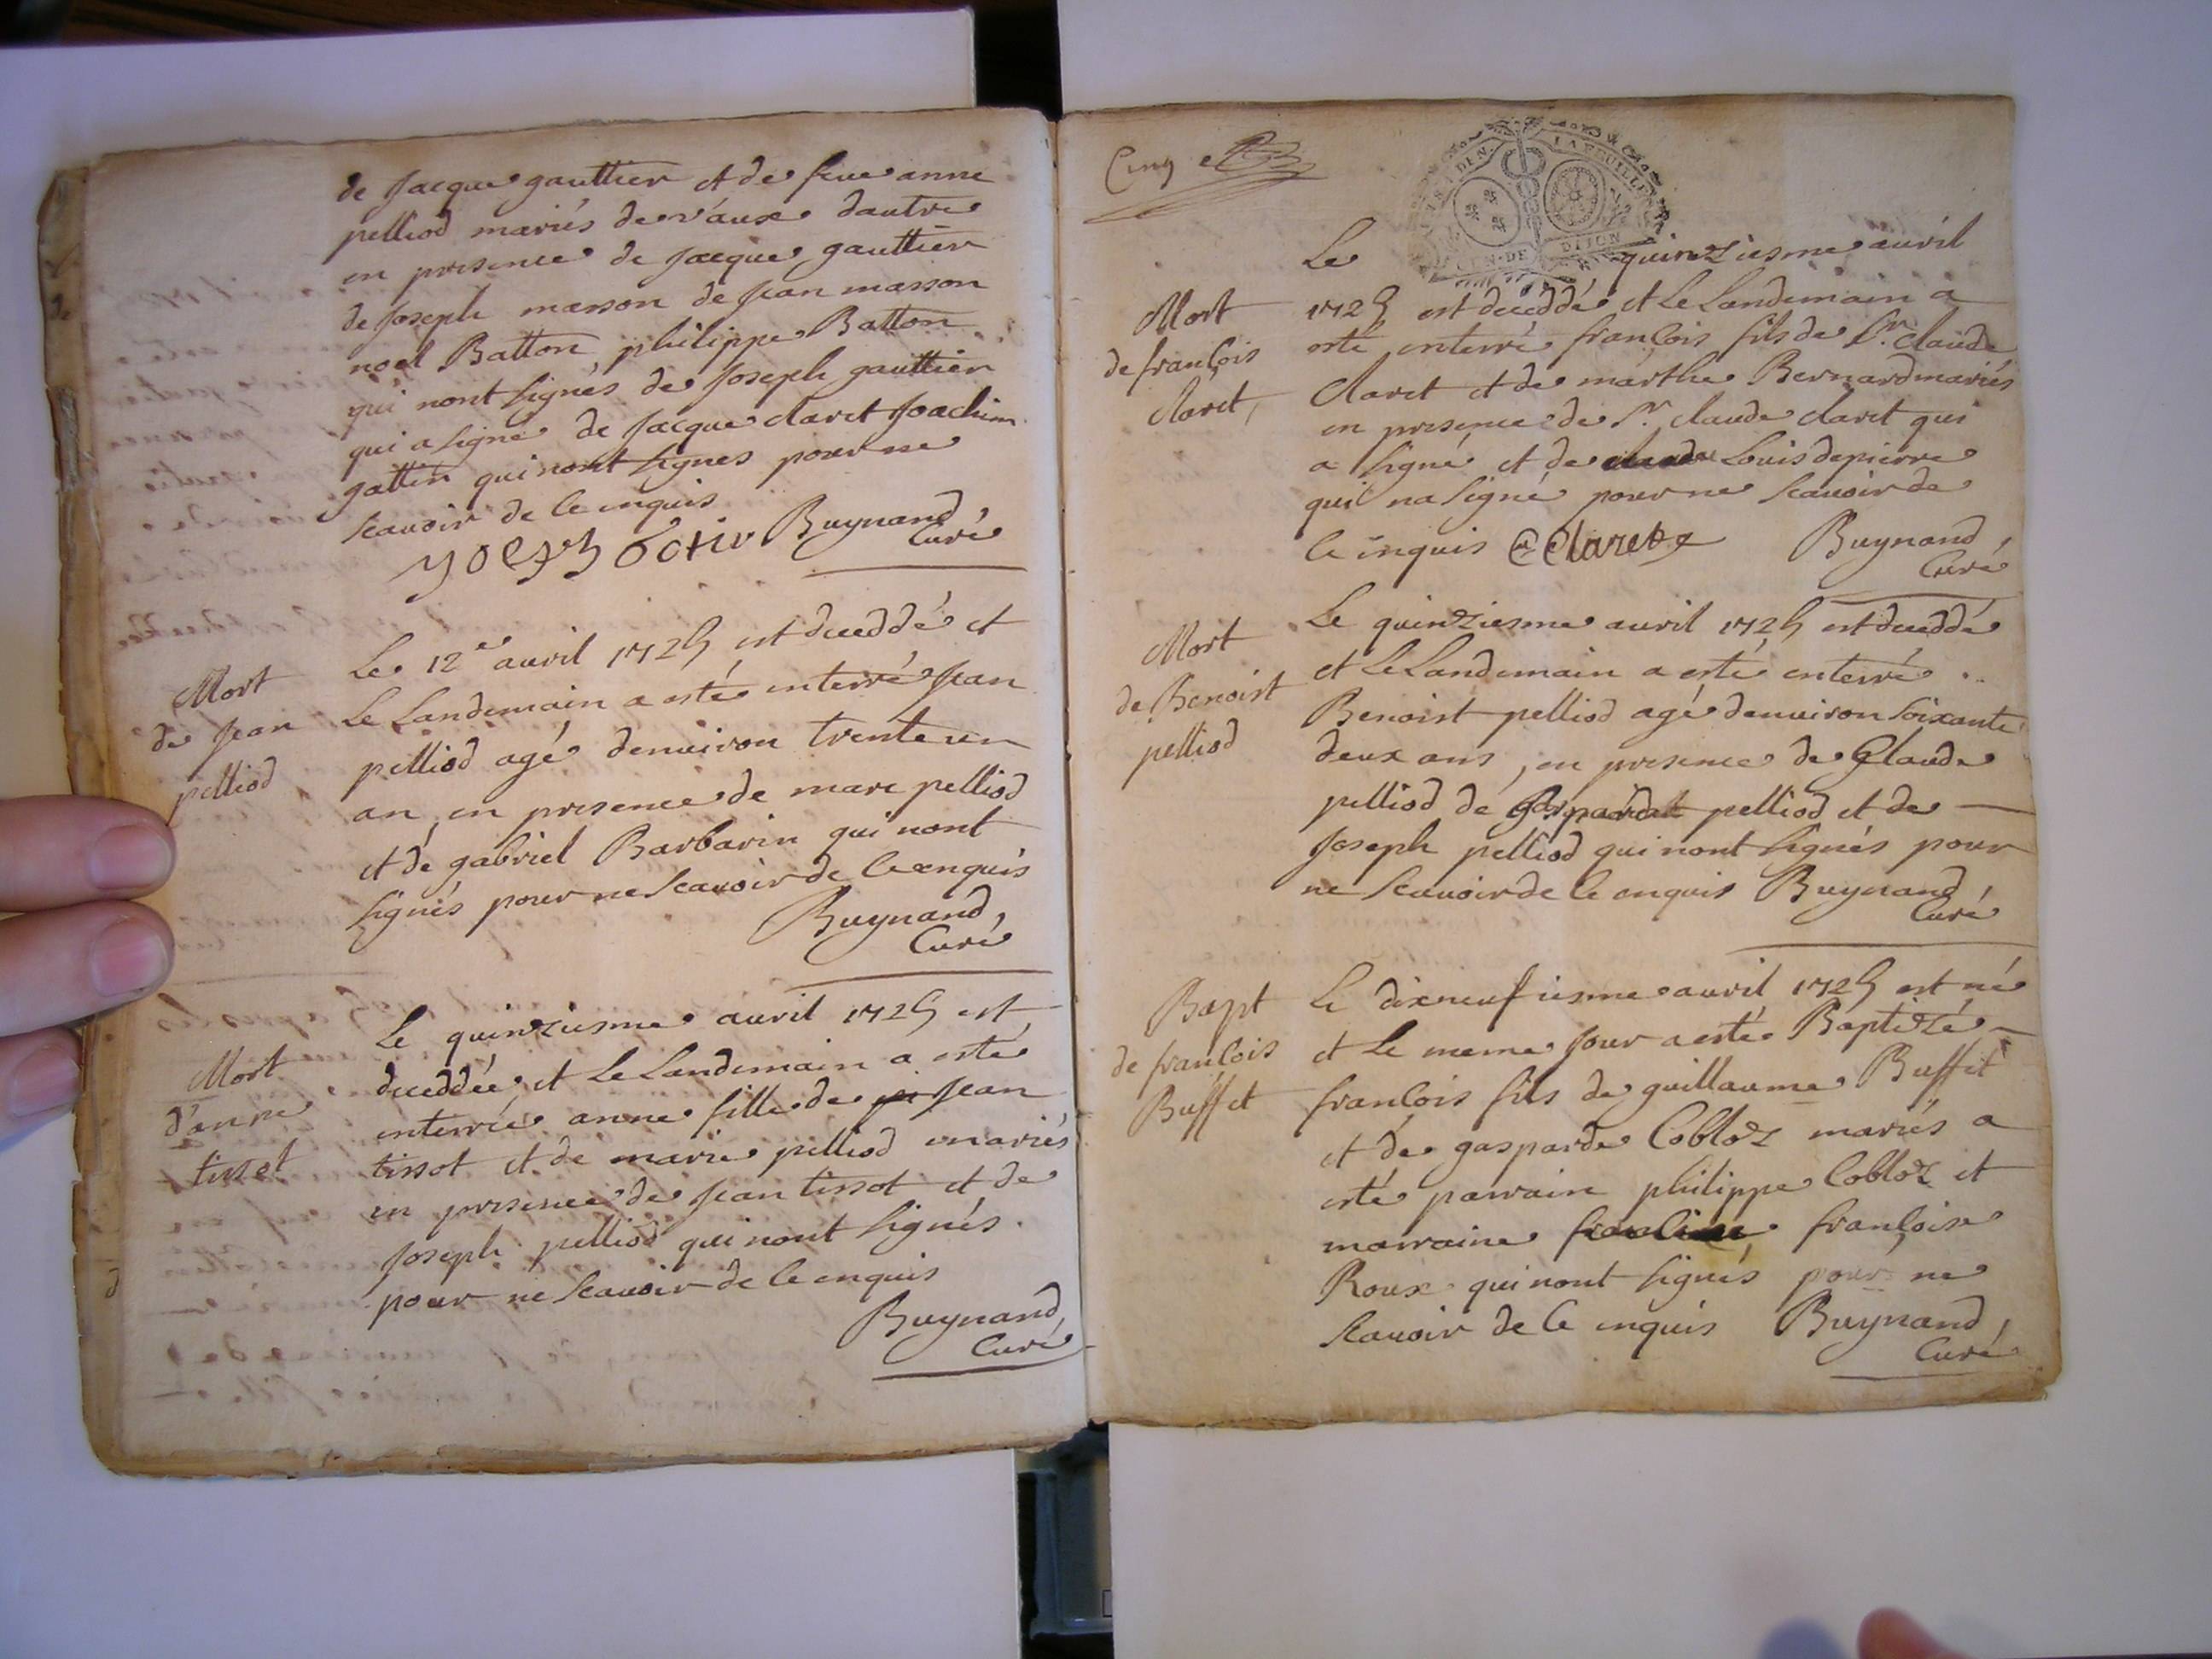 de Jacque gauttier et de feue anne
pelliod mariés de vaux dautre
en presence de Jacque gauttier
de Joseph masson de Jean masson
noel Batton philippe Batton
qui nont signés de Joseph gauttier
qui a signé de Jacque claret Joachim
gattin qui nont signes pour ne
scauoir de ce enquis
Buynand,
Curé
Mort
de Jean
pelliod
Le 12e auril 1725 est deceddé et
Le Landemain a esté enterré Jean
pelliod agé denuiron trente un
an, en presence de marc pelliod
et de gabriel Barbarin qui nont
signés pour ne scauoir de ce enquis
Buynand,
Curé
Mort
d'anne
tissot
Le quinziesme auril 1725 est
deceddée, et Le Landemain a esté
enterrée anne fille de Jean
tissot et de marie pelliod mariés
en presence de Jean tissot et de
Joseph pelliod qui nont signés
pour ne scauoir de ce enquis
Buynand,
Curé
Cinq
LA FEUILLE
DIJON
Le quinziesme auril
Mort
de francois
claret,
1725 est deceddé et Le Landemain a
esté enterré francois fils de Sr. claude
Claret et de marthe Bernard mariés
en presence de Sr. claude claret qui
a signé et de Louis depierre
qui na signé pour ne scauoir de
ce enquis Claret Buynand,
Curé
Mort
de Benoist
pelliod
Le quinziesme auril 1725 est deceddé
et Le Landemain a esté enterré
Benoist pelliod agé denuiron soixante
deux ans, en presence de Claude
pelliod de pelliod et de
Joseph pelliod qui nont signés pour
ne scauoir de ce enquis Buynand,
Curé
Bapt
de francois
Buffet
Le dixneufuiesme auril 1725 est né
et Le meme Jour a esté Baptizé
francois fils de guillaume Buffet
et de gasparde Cobloz mariés a
esté parrain philippe Cobloz et
marraine francoise
Roux qui nont signés pour ne
scauoir de ce enquis Buynand,
Curé